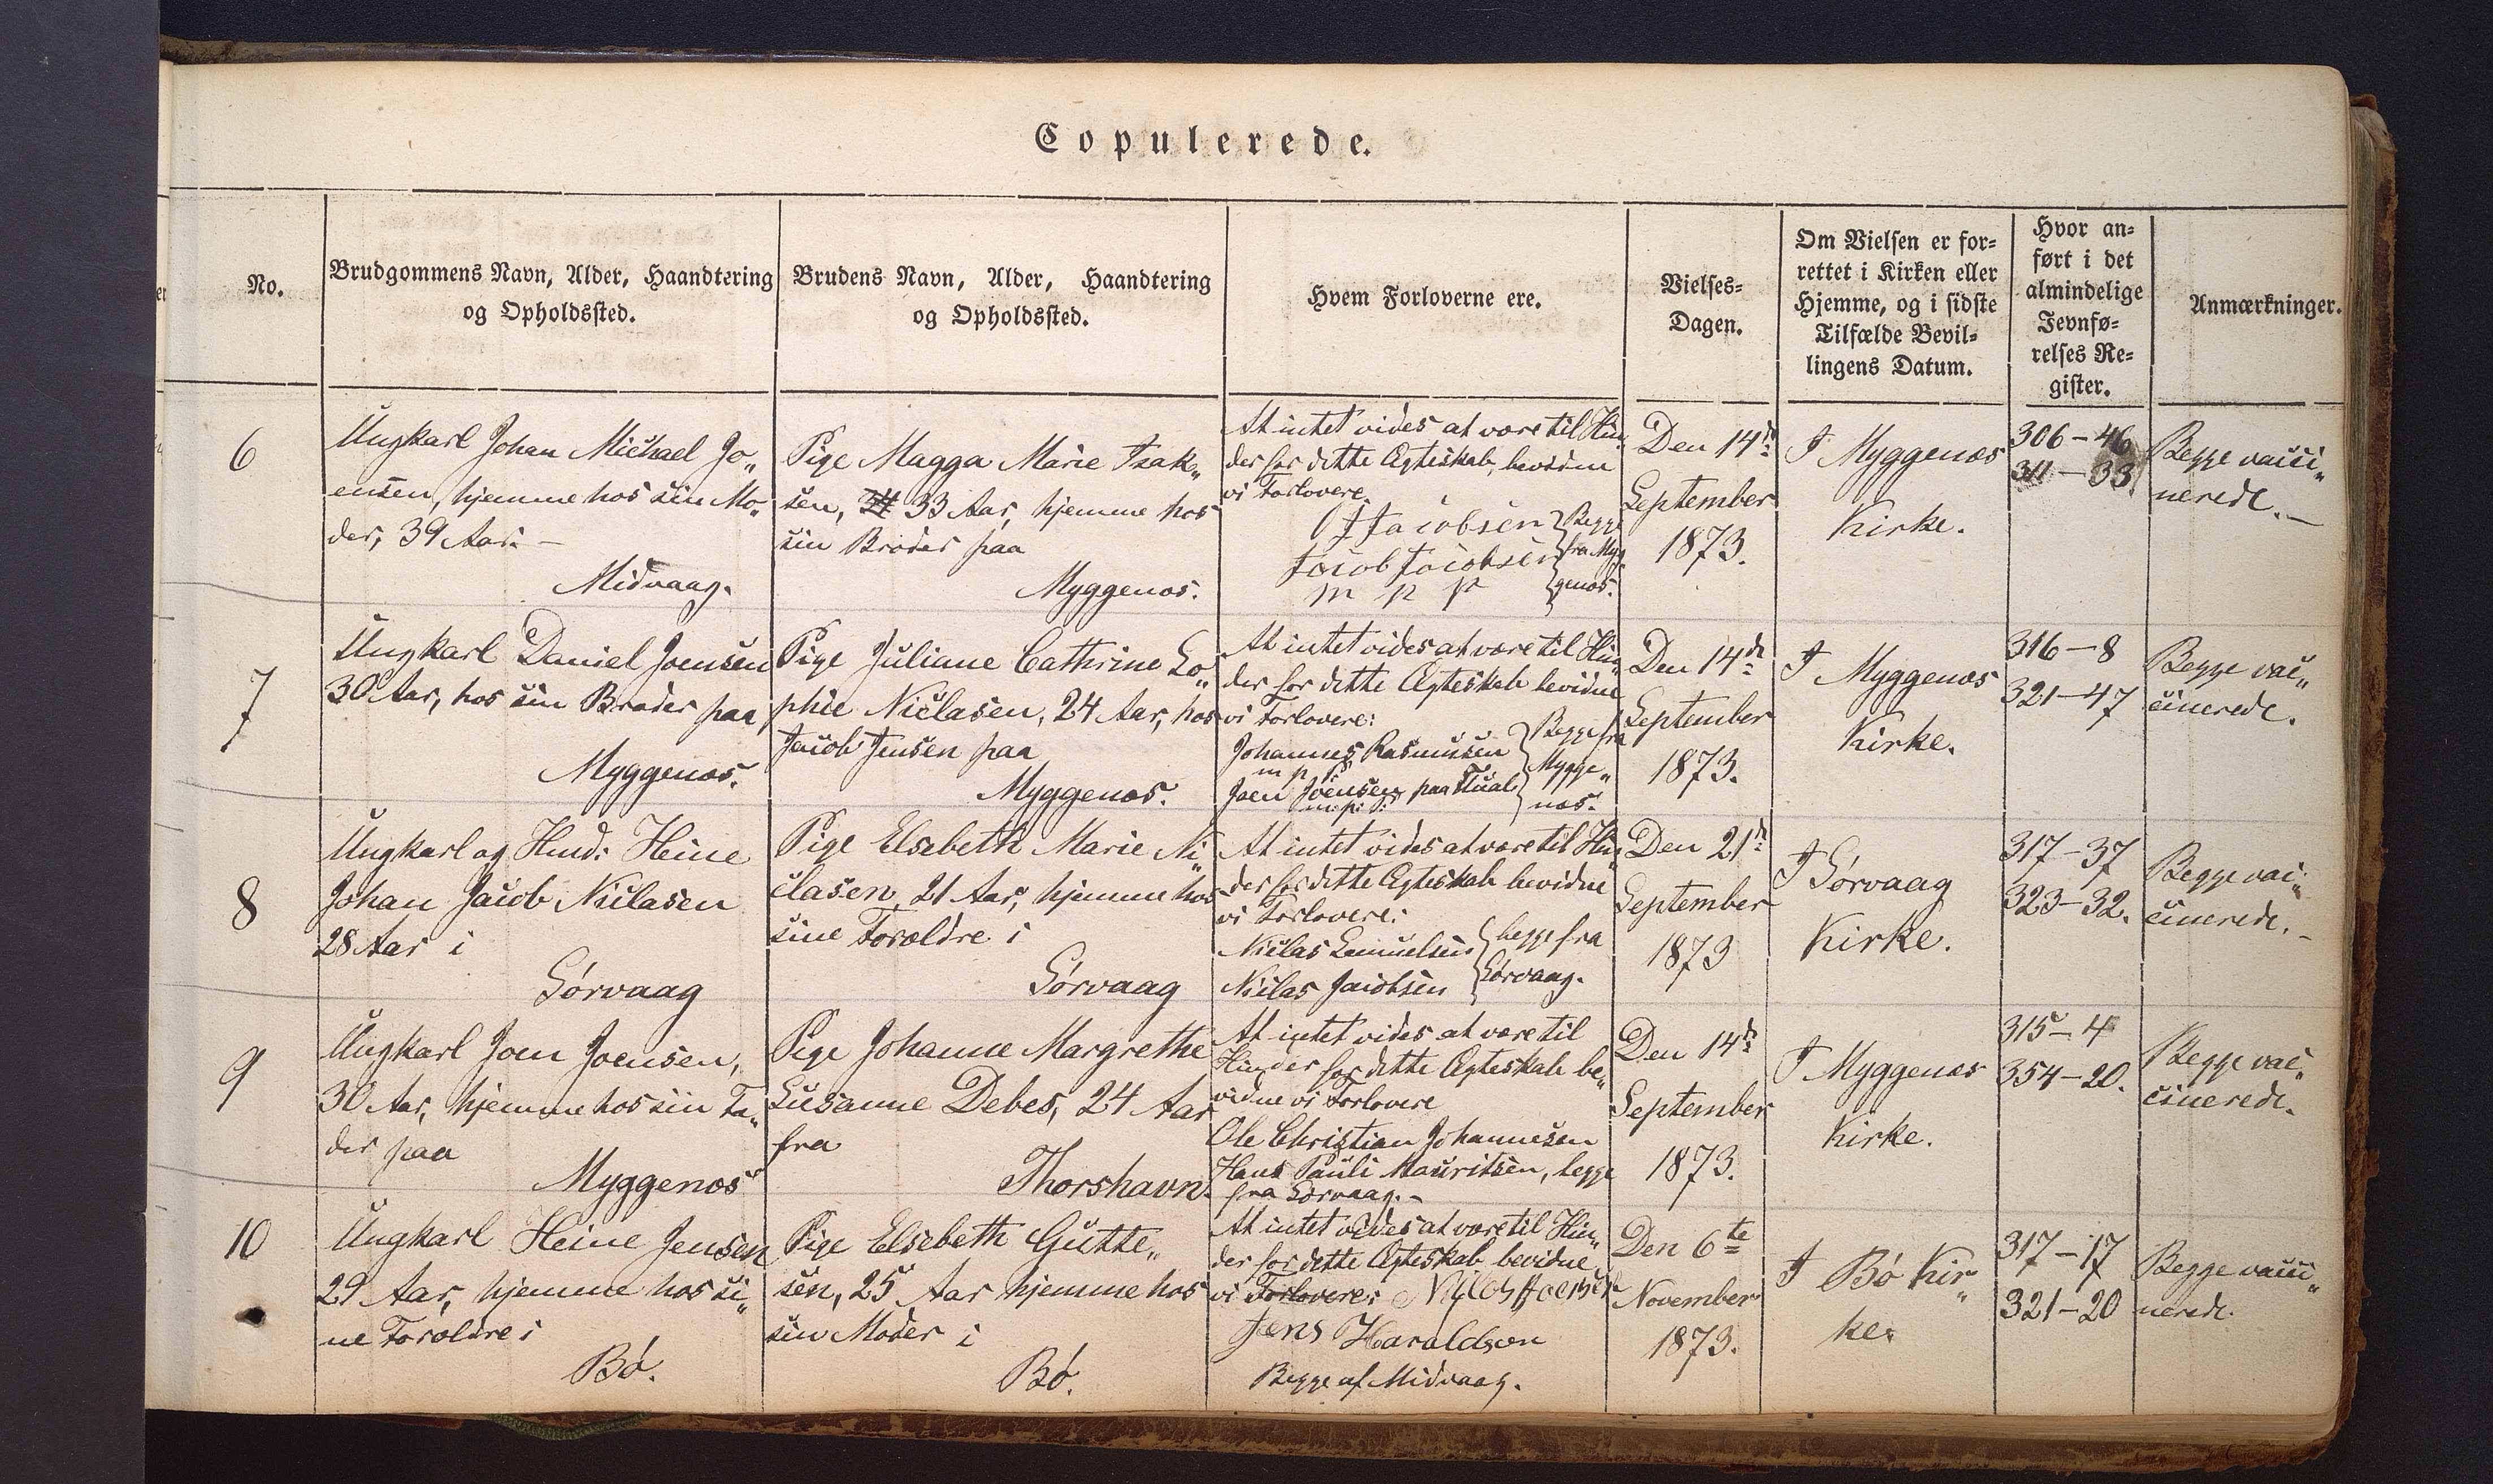 Copulerede.
No.
Brudgommens Navn, Alder, Haandtering
og Opholdssted.
Brudens Navn, Alder, Haandtering
og Opholdssted.
Hvem Forloverne ere.
Vielses-
Dagen.
Om Vielsen er for-
rettet i Kirken eller
Hjemme, og i sidste
Tilfælde Bevil-
lingens Datum.
Hvor an-
ført i det
almindelige
Jevnfø-
relses Re-
gister.
Anmærkninger.
6
Ungkarl Johan Michael Jo„
ensen, hjemme hos sin Mo„
der, 39 Aar. —
Midvaag.
Pige Magga Marie Isak„
sen, 33 Aar, hjemme hos
sin Broder paa
Myggenæs.
At intet vides at være til Hin„
der for dette Ægteskab, bevidne
vi Forlovere
J Jacobsen
Jacob Jacobsen
m p p
Begge
fra Myg„
genæs.
Den 14de
September
1873.
I Myggenæs
Kirke.
306-46
311-33
Begge vacci„
nerede. —
7
Ungkarl Daniel Joensen
30 Aar, hos sin Broder paa
Myggenæs.
Pige Juliane Cathrine So„
phie Niclasen, 24 Aar, hos
Jacob Jensen paa
Myggenæs.
At intet vides at være til Hin„
der for dette Ægteskab bevidne
vi Forlovere:
Johannes Rasmussen
m p p
Joen Joensen paa
m. p. p.
Begge fra
Mygge„
næs.
Den 14de
September
1873.
I Myggenæs
Kirke.
316-8
321-47
Begge vac„
cinerede.
8
Ungkarl og Huusd: Heine
Johan Jacob Niclasen
28 Aar i
Sørvaag
Pige Elsebeth Marie Ni„
clasen, 21 Aar, hjemme hos
sine Forældre i
Sørvaag
At intet vides at være til Hin„
der for dette Ægteskab bevidne
vi Forlovere:
Niclas Samuelsen
Niclas Jacobsen
begge fra
Sørvaag.
Den 21de
September
1873
I Sørvaag
Kirke.
317-37
323-32.
Begge vac„
cinerede. —
9
Ungkarl Joen Joensen,
30 Aar, hjemme hos sin Fa„
der paa
Myggenæs
Pige Johanne Margrethe
Susanne Debes, 24 Aar
fra
Thorshavn.
At intet vides at være til
Hinder for dette Ægteskab be„
vidne vi Forlovere
Ole Christian Johannesen
Hans Pauli Mauritsen, begge
fra Sørvaag. —
Den 14de
September
1873.
I Myggenæs
Kirke.
315-4
354-20.
Begge vac„
cinerede.
10
Ungkarl Heine Jensen
29 Aar, hjemme hos si„
ne Forældre i
Bø.
Pige Elsebeth Gutte„
sen, 25 Aar hjemme hos
sin Moder i
Bø.
At intet vides at være til Hin„
der for dette Ægteskab bevidne
vi Forlovere:
Jens Haraldsen
Begge af Midvaag.
Den 6te
November
1873.
I Bø Kir„
ke.
317-17
321-20
Begge vacci„
nerede.